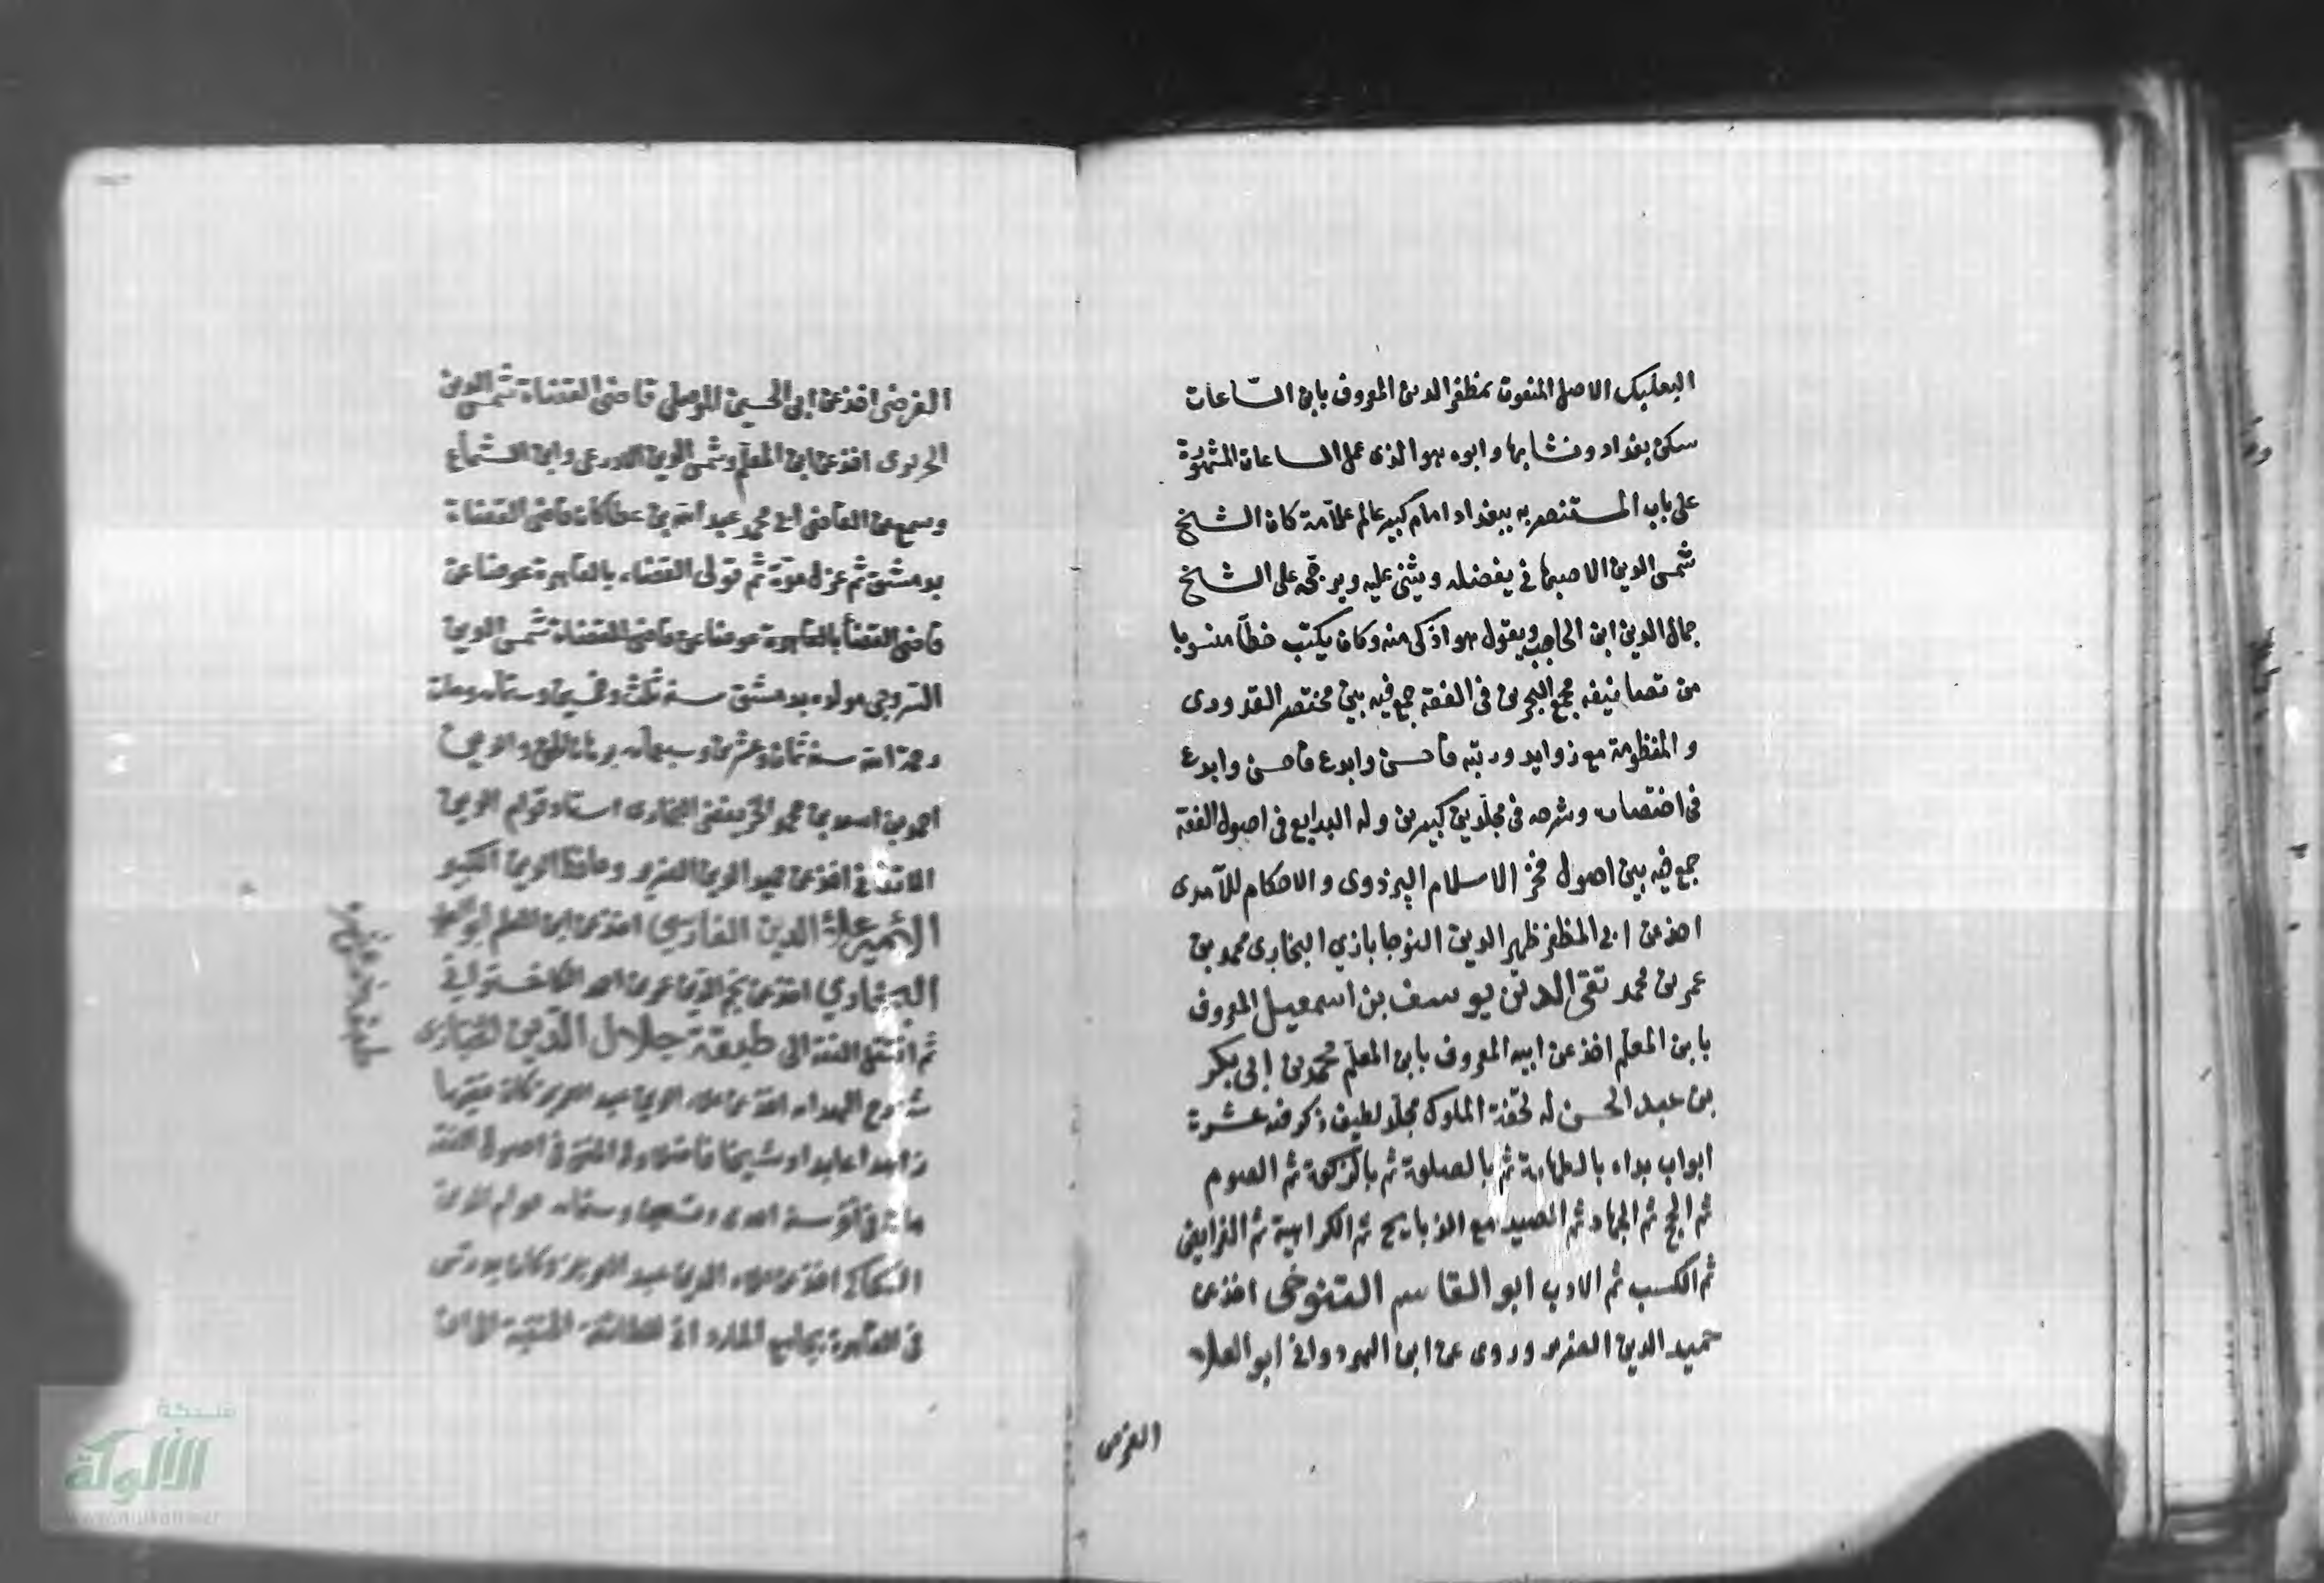 البعلبكى الاصل المنعوت بمظفر الدين المعروف بابن الساعات
سكن بغداد ونشا بها وابوه هو الذى عمل الساعات المشهورة
على باب المستنصريه ببغداد امام كبير عالم علّامة كان الشيخ
شمس الدين الاصبهانى يفضله ويثنى عليه ويرجحه على الشيخ
جمال الدين ابن الحاجب ويقول هو اذكى منه وكان يكتب خطا منسوبا
من تصانيفه مجمع البحرين فى الفقه جمع فيه بين مختصر القدورى
والمنظومة مع زوايد ورتبه فاحسن وابدع فاحسن وابدع
فى اختصاره وشرحه فى مجلدين كبيرين وله البدايع فى اصول الفقه
جمع فيه بين اصول فخر الاسلام البزدوى والاحكام للآمدى
اخذ عن ابى المظفر ظهير الدين النوجاباذي البخارى محمد بن
عمر بن محمد تقى الدين يوسف بن اسمعيل المعروف
بابن المعلم اخذ عن ابيه المعروف بابن المعلم محمد بن ابى بكر
بن عبد الحسن له تحفة الملوك مجلد لطيف ذكر فيه عشرة
ابواب بداء بالطهارة ثم بالصلوة ثم بالزكوة ثم الصوم
ثم الحج ثم الجهاد ثم الصيد مع الذبايح ثم الكراهية ثم الفرايض
ثم الكسب ثم الادب ابو القاسم التنوخى اخذ عن
حميد الدين الضرير وروى عن ابن ابو العلاء
الفرضى
الفرضى اخذ عن ابى الحسين الموصلى قاضى القضاة شمس الدين
الحريرى اخذ عن ابن المعلم وشمس الدين الاذرعى وابن الشماع
وسمع من القاضى ابى محمد عبد الله بن عطا كان قاضى القضاة
بدمشق ثم عزل مرة ثم تولى القضاء بالقاهرة عوضا عن
قاضى القضا بالقاهرة عوضا عن قاضى القضاة شمس الدين
السروجى مولده بدمشق سنة ثلث وخمسين وستمايه ومات
رحمة الله سنة ثمان وعشرين وسبعمايه برهان الدين
احمد بن اسعد بن محمد الخريفغنى البخارى استاد قوام الدين
الاتقانى اخذ عن حميد الدين الضرير وحافظ الدين الكبير
الامير علاء الدين الفارسي اخذ عن ابن المعلم ابو العلا
البخاري اخذ عن نجم الدين عمر بن احمد الكاخشتوانى
ثم انتقل الفقه الى طبقة جلال الدين الخبازى
شروع الهدايه اخذ عن علاء الدين عبد العزيز كان فقيها
زاهدا عابدا وشيخا فاضلا وله المغنى فى اصول الفقه
مات فى سنة احدى وتسعين وستمايه قوام الدين
الكاكى اخذ عن علاء الدين عبد العزيز وكان يدرس
فى القاهرة بجامع الماردانى للطائفة الحنفية الى ان
شبكة
الألوكة
www.alukah.net